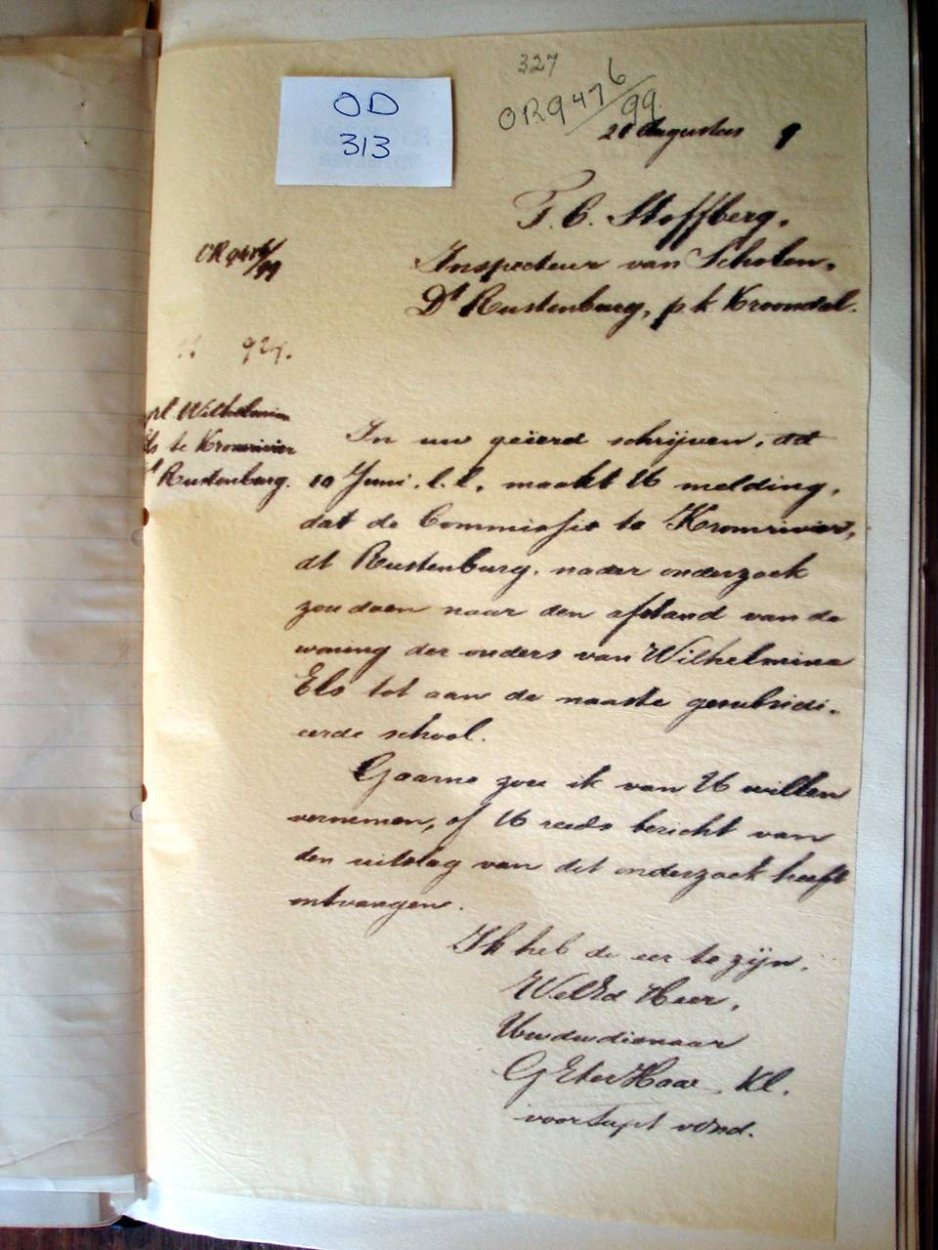 327
OR 9476/99
OD
313
Augustus 9
T. C. Stoffberg,
Inspecteur van Scholen,
Dt Rustenburg, p.k Kroondal.
OR 9476/99
924.
Wilhelmina
Els te Kromrivier
Rustenburg.
In uw geëerd schrijven, dd
10 Juni. l.l, maakt U melding,
dat de Commissie te Kromrivier,
dt Rustenburg, nader onderzoek
zou doen naar den afstand van de
woning der ouders van Wilhelmina
Els tot aan de naaste gesubsidi-
eerde school.
Gaarne zou ik van U willen
vernemen, of U reeds bericht van
den uitslag van dit onderzoek heeft
ontvangen.
Ik heb de eer te zijn,
WelEd Heer,
Uwdwdienaar
G E ter Haar, Kl.
voor Supt vOnd.